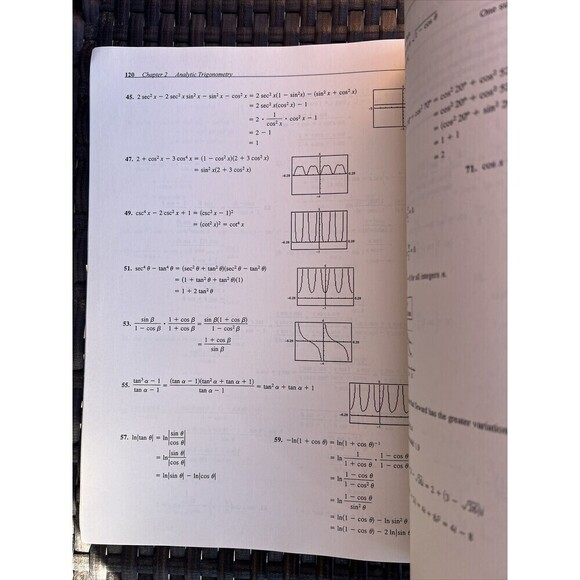 120 Chapter 2 Analytic Trigonometry
45. 2 sec² x − 2 sec² x sin² x − sin² x − cos² x = 2 sec² x(1 − sin²x) − (sin² x + cos² x)
= 2 sec² x(cos² x) − 1
= 2 · 1/cos² x · cos² x − 1
= 2 − 1
= 1
47. 2 + cos² x − 3 cos⁴ x = (1 − cos² x)(2 + 3 cos² x)
= sin² x(2 + 3 cos² x)
49. csc⁴ x − 2 csc² x + 1 = (csc² x − 1)²
= (cot² x)² = cot⁴ x
51. sec⁴ θ − tan⁴ θ = (sec² θ + tan² θ)(sec² θ − tan² θ)
= (1 + tan² θ + tan² θ)(1)
= 1 + 2 tan² θ
53. sin β/1 − cos β · 1 + cos β/1 + cos β = sin β(1 + cos β)/1 − cos² β
= 1 + cos β/sin β
55. tan³ α − 1/tan α − 1 = (tan α − 1)(tan² α + tan α + 1)/tan α − 1 = tan² α + tan α + 1
57. ln|tan θ| = ln|sin θ/cos θ|
= ln|sin θ|/|cos θ|
= ln|sin θ| − ln|cos θ|
59. −ln(1 + cos θ) = ln(1 + cos θ)⁻¹
= ln 1/1 + cos θ · 1 − cos θ/1 − cos
= ln 1 − cos θ/1 − cos² θ
= ln 1 − cos θ/sin² θ
= ln(1 − cos θ) − ln sin² θ
= ln(1 − cos θ) − 2 ln|sin
= cos² 20° + cos² 52
= 1 + 1
= 2
71. cos x
has the greater variation